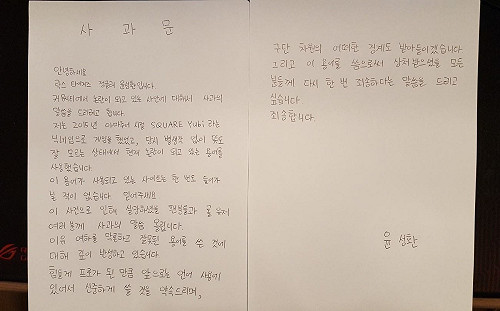 사 과 문
안녕하세요
락스 타이거즈 정글러 윤성환입니다.
커뮤니티에서 논란이 되고 있는 사건에 대해서 사과의
말씀을 드리려고 합니다.
저는 2015년 아마추어 시절 SQUARE Yubi 라는
닉네임으로 게임을 했었고, 당시 별생각 없이 뜻도
잘 모르는 상태에서 현재 논란이 되고 있는 용어를
사용했습니다.
이 용어가 사용되고 있는 사이트는 한 번도 들어가
본 적이 없습니다. 믿어주세요.
이 사건으로 인해 실망하셨을 팬분들과 롤 유저
여러분께 사과의 말씀 올립니다.
이유 여하를 막론하고 잘못된 용어를 쓴 것에
대해 깊이 반성하고 있습니다.
힘들게 프로가 된 만큼 앞으로는 언어 사용에
있어서 신중하게 쓸 것을 약속드리며,
구단 차원의 어떠한 징계도 받아들이겠습니다.
그리고 이 용어를 씀으로써 상처받으셨을 모든
분들께 다시 한 번 죄송하다는 말씀을 드리고
싶습니다.
죄송합니다.
윤 성환